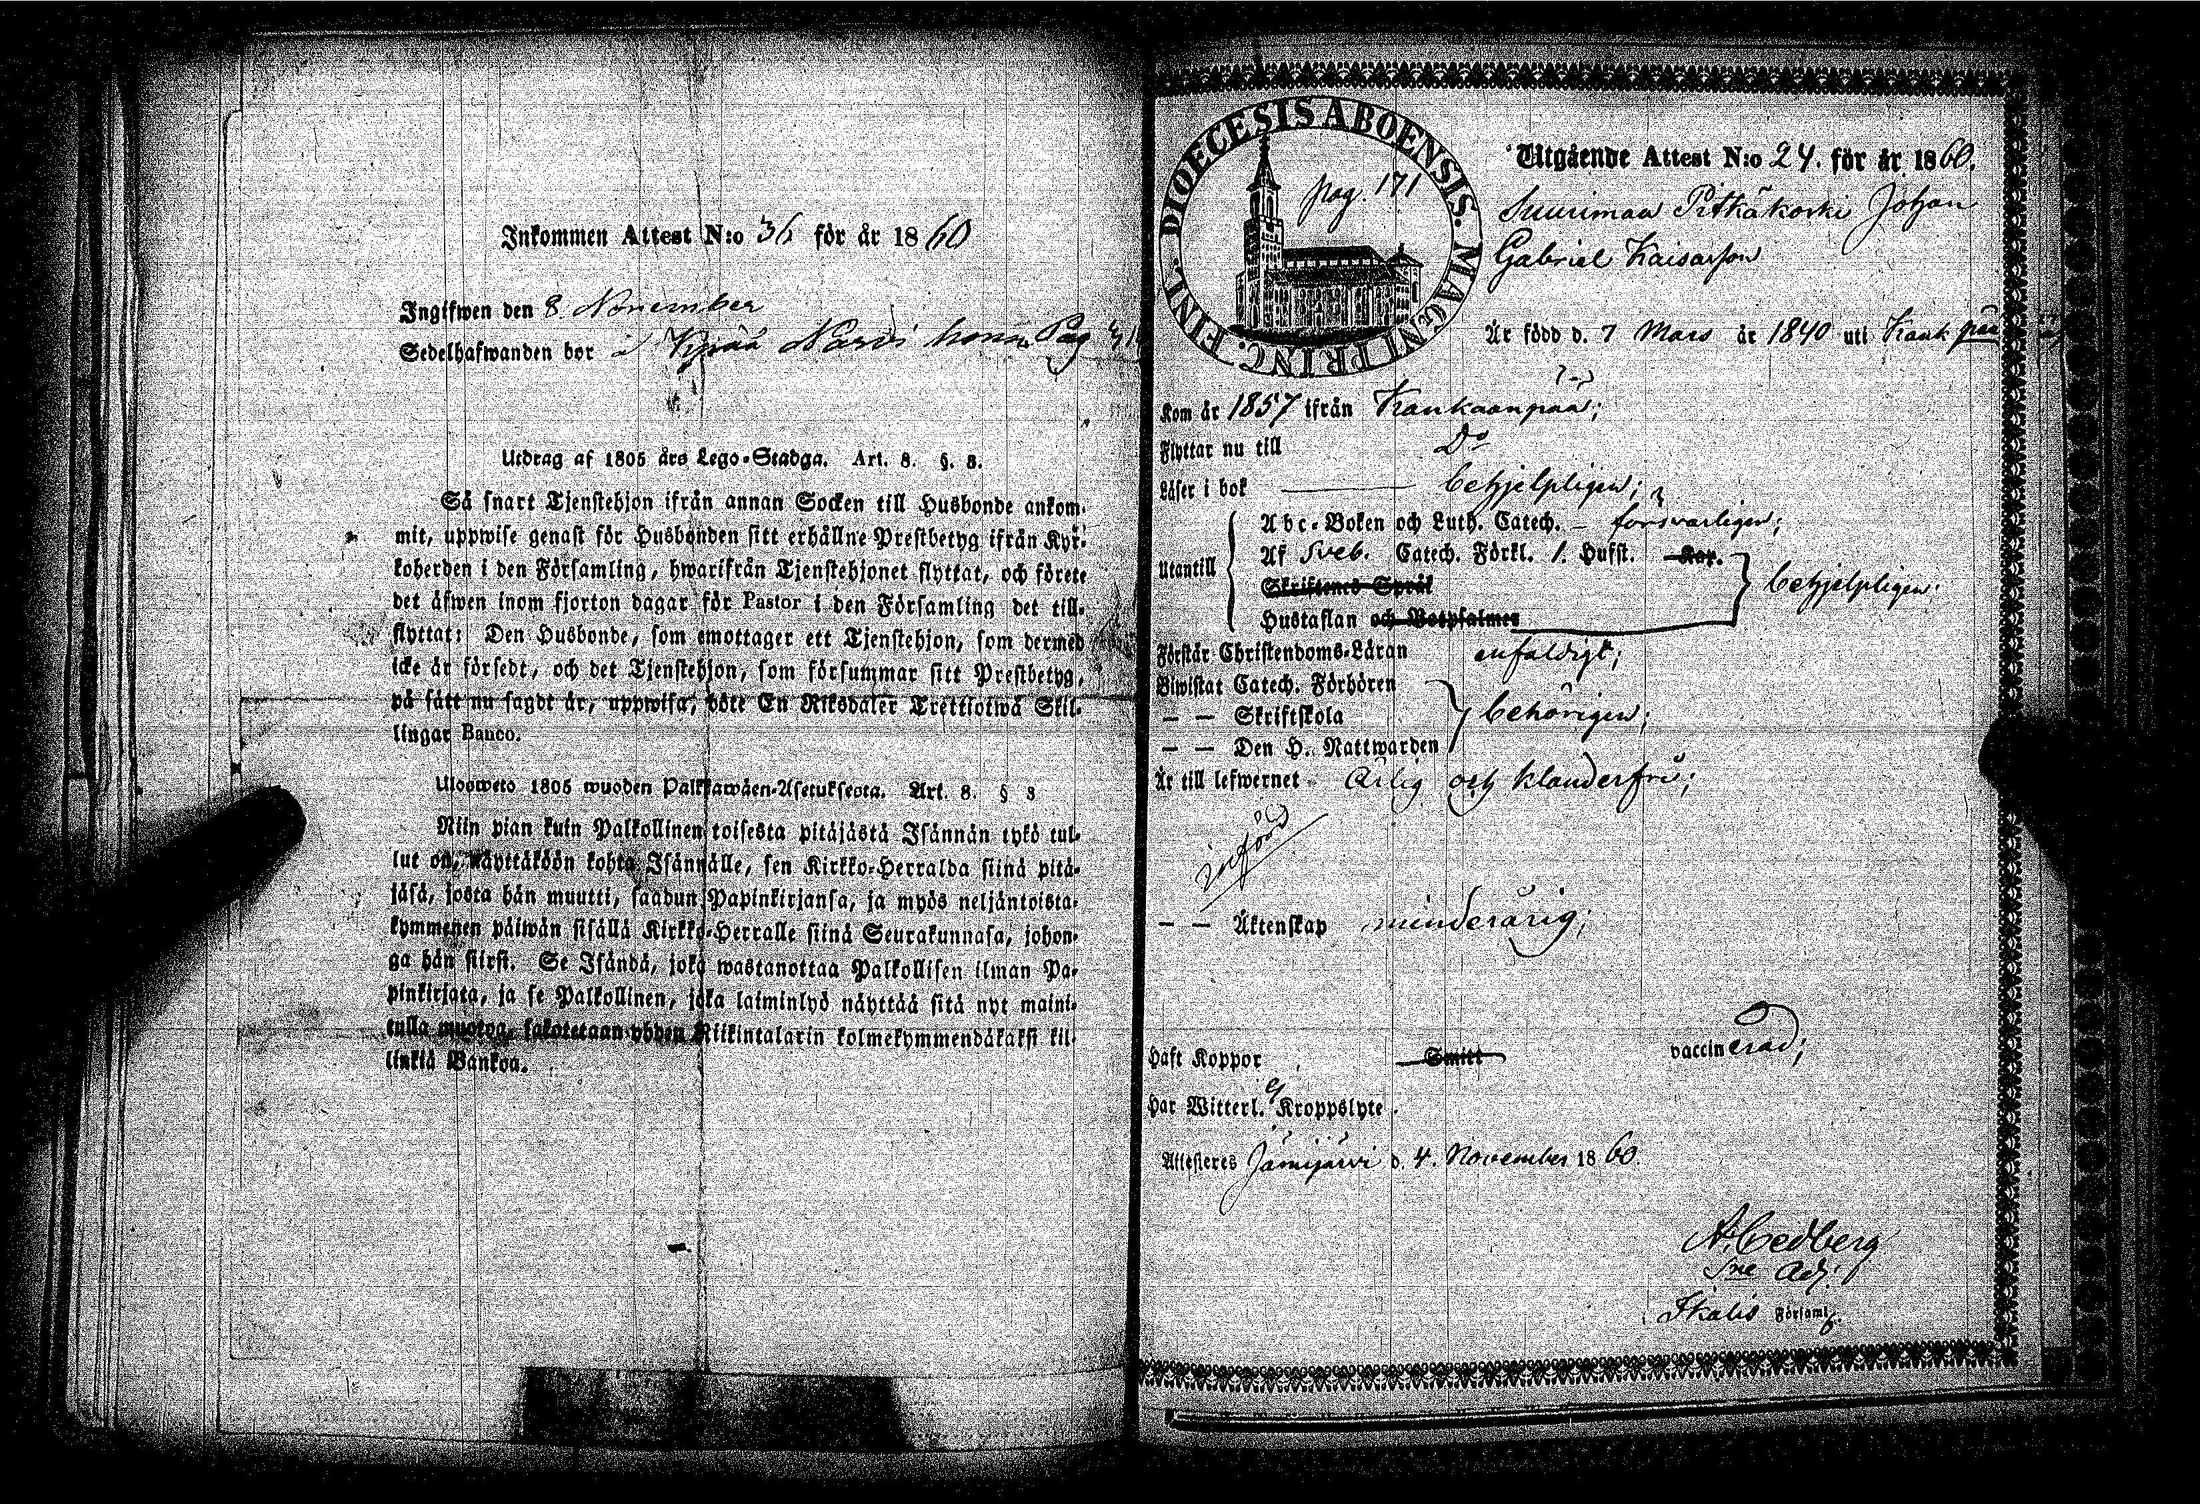 Inkommen Attest N:o 36 för år 1860
Ingifwen den 8 November
Sedelhafwanden bor
Utdrag af 1805 års Lego-Stadga. Art. 8. §. 8.
Så snart Tjenstehjon ifrån annan Socken till Husbonde ankom-
mit, uppwise genast för Husbonden sitt erhållne Prestbetyg ifrån Kyr-
koherden i den Församling, hwarifrån Tjenstehjonet flyttat, och förete
det äfwen inom fjorton dagar för Pastor i den Församling det till-
flyttat: Den Husbonde, som emottager ett Tjenstehjon, som dermed
icke är försedt, och det Tjenstehjon, som försummar sitt Prestbetyg,
på sätt nu sagdt är, uppwisa, böte En Riksdaler Trettiotwå Skil-
lingar Banco.
Ulosweto 1805 wuoden Palkkawäen-Asetuksesta. Art. 8. § 8
Niin pian kuin Palkollinen toisesta pitäjästä Isännän tykö tul-
lut on, näyttäköön kohta Isännälle, sen Kirkko-Herralda siinä pitä-
jäsä, josta hän muutti, saadun Papinkirjansa, ja myös neljäntoista-
kymmenen päiwän sisällä Kirkko-Herralle siinä Seurakunnasa, johon-
ga hän siirsi. Se Isändä, joka wastanottaa Palkollisen ilman Pa-
pinkirjata, ja se Palkollinen, joka laiminlyö näyttää sitä nyt maini-
tulla muotoa, sakotetaan yhden Riikintalarin kolmekymmendäkaksi kil-
linkiä Bankoa.
DIOECESIS ABOENSIS. MAGNI PRINC. FINL.
pag. 171
Utgående Attest N:o 24. för år 1860.
Suurimaa Pitkäkoski Johan
Gabriel Kaisarson
Är född d. 7 Mars år 1840 uti Kankpää
Kom år 1857 ifrån Kankaanpää;
Flyttar nu till Do
Läser i bok behjelpligen;
Utantill
Abc-Boken och Luth. Catech. - försvarligen;
Af Sveb. Catech. Förkl. 1. Hufst. Kap.
Skriftenes Språk
behjelpligen.
Hustaflan och Botpsalmer
Förstår Christendoms-Läran enfaldigt;
Biwistat Catech. Förhören
— — Skriftskola
behörigen;
— — Den H. Nattwarden
Är till lefwernet Ärlig och klanderfri;
införd
— — Äktenskap minderårig;
Haft Koppor Smitt vaccinerad;
Har Witterl. ej Kroppslyte.
Attesteres Jämijärvi d. 4. November 1860.
A. Cedberg
Adj.
Ikalis Församl.